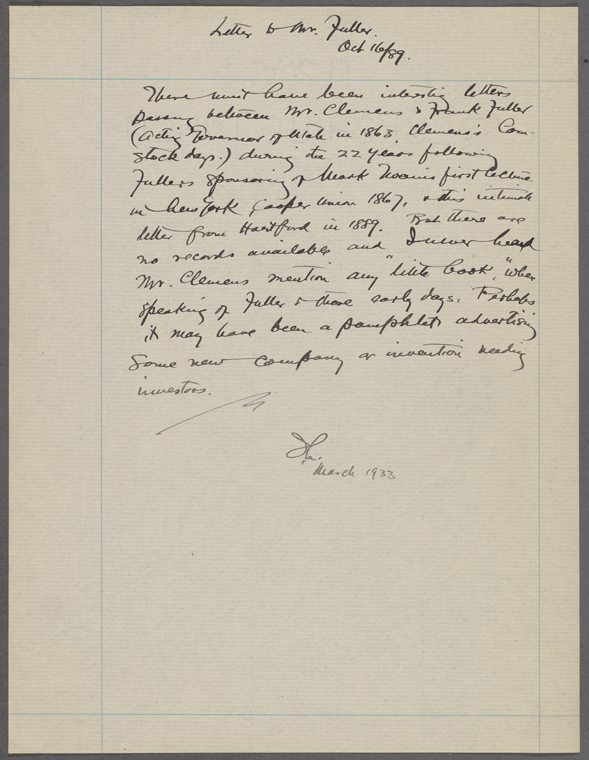 Letter to Mr. Fuller.
Oct 16/89.
There must have been interesting letters
passing between Mr. Clemens & Frank Fuller
(Acting Governor of Utah in 1863, Clemens's Com-
stock days.) during the 22 years following
Fullers sponsoring of Mark Twains first lecture
in New York Cooper Union 1867, & this intimate
letter from Hartford in 1889. But there are
no records available and I never heard
Mr. Clemens mention any "little book," when
speaking of Fuller & those early days. Perhaps
it may have been a pamphlet advertising
some new company or invention needing
investors.
March 1933